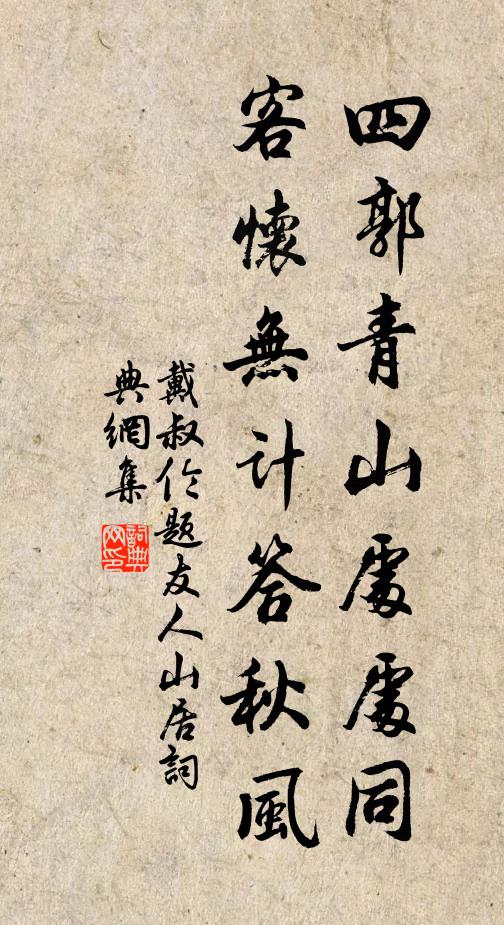 四郭青山處處同
客懷無計答秋風
戴叔伦題友人山居詞
典網集
詞典網印